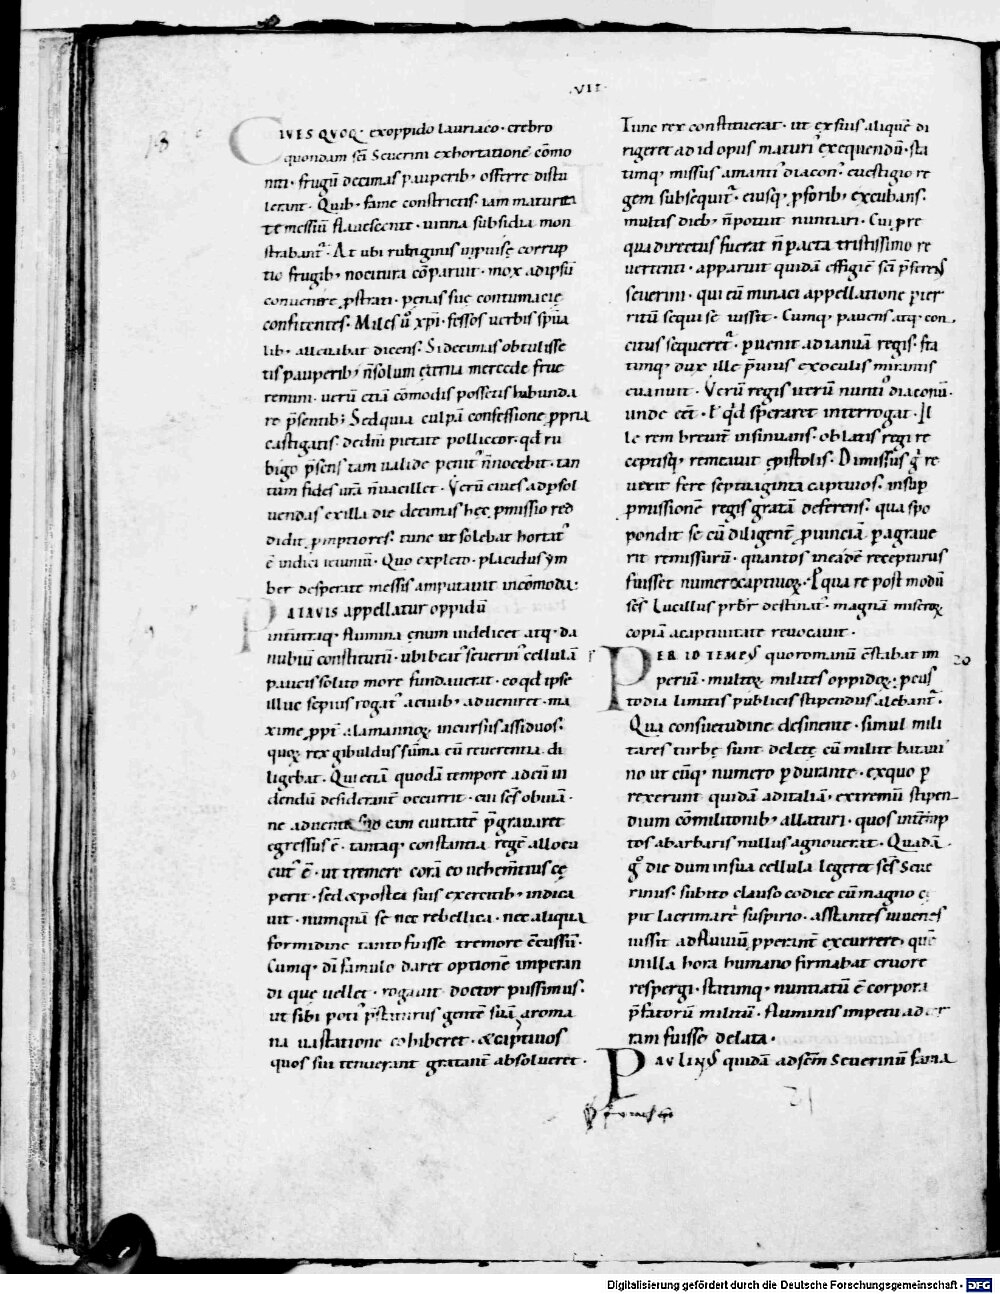 .VII.
CIVES QVOQ; exoppido lauriaco · crebro
quondam sc̄i Severini exhortatione cōmo
niti · frugū decimas pauperib; offerre distu
lerant · Quib; fame constrictis · iam maturita
te messiū flavescente · vicina subsidia mon
strabant᷑ · At ubi rubiginis inpuisę corrup
tio frugib; nocitura cōparuit · mox adipsū
convenire ꝓstrati · penas suę contumacię
confitentes · Miles ū xp̄i · fessos verbis spūa
lib; allevabat dicens · Sidecimas obtulisse
tis pauperib; n̄solum ęterna mercede frue
remini · verū etiā cōmodis possetis habunda
re p̄sentib; Sedquia culpā confessione ꝓpria
castigatis · dedn̄i pietate polliceor · qd̄ ru
bigo p̄sens tam valide penit᷒ n̄nocebit · tan
tum fides urā n̄vacillet · Verū cives adpsol
vendas exilla die decimas hęc ꝓmissio red
didit ꝓmptiores · tunc ut solebat hortat᷒
ē indici ieiuniū · Quo expleto · placidus ym
ber desperate messis amputavit incōmoda ·
PATAVIS appellatur oppidū
intutraq; flumina ęnum videlicet atq; da
nubiū constitutū · ubi beat᷒ severin᷒ cellulā
paucis solito more fundaverat · eo qd̄ ipse
illuc sepius rogat᷒ acivib; adveniret · ma
xime ꝓpt᷒ alamannoꝝ incursus assiduos ·
quoꝝ rex gibuldus sūma cū reverentia di
ligebat · Qui etiā quodā tempore adeū vi
dendū desiderant᷒ occurrit · cui sc̄s obviā ·
ne adventu suo eam civitatē p̄gravaret
egressus ē · tantaq; constantia regē allocu
tus ē · ut tremere corā eo vehementius cę
perit · sed & postea suis exercitib; indica
vit · numquā se nec rebellica · nec aliqua
formidine tanto fuisse tremore cc̄ussū ·
Cumq; dī famulo daret optionē imperan
di que vellet · rogavit doctor piissimus ·
ut sibi poti᷒ p̄stiturus gentē suā aroma
na vastatione cohiberet · & captivos
quos sui tenuerant gratant᷒ absolveret ·
Tunc rex constituerat · ut ex suis aliquē di
rigeret ad id opus maturi᷒ exequendū · sta
timq; missus amanti᷒ diacon᷒ evestigio re
gem subsequit᷒ · eiusq; ꝓforib; excubans ·
multis dieb; n̄potuit nuntiari · Cui ꝓre
qua directus fuerat n̄ pacta tristissimo re
vertenti · apparuit quidā effigiē sc̄i p̄ferens
severini · qui eū minaci appellatione ꝑter
ritū sequi se iussit · Cumq; pavens atq; con
citus sequeret᷒ · pvenit ad ianuā regis · sta
timq; dux ille p̄vius exoculis mirantis
evanuit · Verū regis iterū nunti᷒ diaconū
unde eēt · l qd̄ speraret interrogat · Il
le rem breviт insinuans · oblatis regi re
ceptisq; remeavit epistolis · Dimissus g̊ re
vexit fere septuaginta captivos · insup
ꝓmissionē regis gratā deferens · qua spo
pondit se cū diligent᷒ ꝓvinciā peragrave
rit remissurū · quantos ineadē recepturus
fuisset numero captivoꝝ · P qua re post modū
sc̄s Lucillus pr̄br destinat᷒ · magnā miseroꝝ
copiā acaptivitate revocavit ·
PER ID TEMPUS quoromanū c̄stabat im
periū · multoꝝ milites oppidoꝝ · pcus
todia limitis publicis stipendiis alebant᷒
Qua consuetudine desinente · simul mili
tares turbę sunt deletę cū milite batavi
no ut cūq; numero pdurante · exquo p
rexerunt quidā aditaliā · extremū stipen
dium cōmilitonib; allaturi · quos initinere ꝑemp
tos abarbaris nullus agnoverat · Quadā
g̊ die dum insua cellula legeret sc̄s Seve
rinus · subito clauso codice cū magno cę
pit lacrimarē suspirio · astantes iuvenes
iussit adfluviū ꝓperant᷒ excurrere · quē
inilla hora humano firmabat cruore
respergi · statimq; nuntiatū ē corpora
p̄fatorū militū · fluminis impetu ad ter
ram fuisse delata ·
PAVLINUS quidā adscm̄ Severinū fama
20
Digitalisierung gefördert durch die Deutsche Forschungsgemeinschaft - DFG